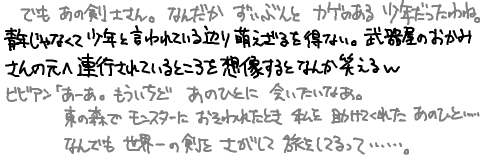 でも あの剣士さん。なんだか ずいぶんと カゲのある 少年だったわね。
青年じゃなくて少年と言われている辺り萌えざるを得ない。武器屋のおかみ
さんの元へ連行されているところを想像するとなんか笑えるw
ビビアン「あーあ。もういちど あのひとに 会いたいなあ。
東の森で モンスターに おそわれたとき 私を 助けてくれた あのひと……
なんでも 世界一の剣を さがして 旅をしてるって……。